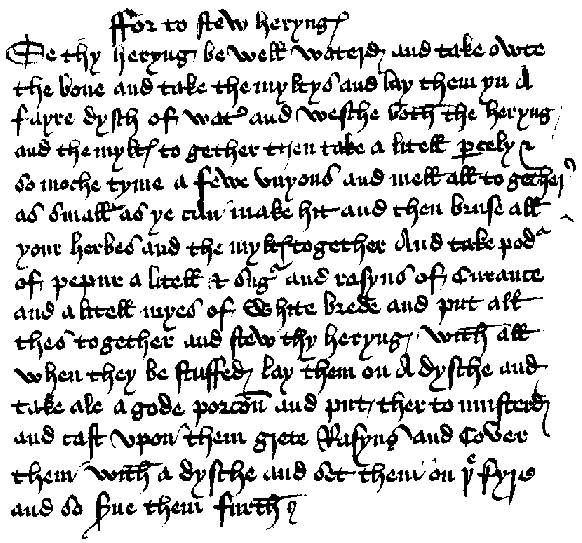 ffor to stew heryng
Se thy heryng be well waterd and take owte
the bone and take the myltys and lay them yn A
fayre dysch of wat' and wesche both the heryng
and the mylt' to gether then take a litell percly &
so moche tyme a fewe vnyons and mell all to gether
as small as ye can make hit and then bruse all
your herbes and the mylt' together And take pod'
of pepur a litell & sug' and rasyns of Curance
and a litell myes of White brede and put all
thes together and stew thy heryng with all
when they be stuffed lay them on A dysche and
take ale a gode porcon and put ther to musterd
and cast vpon them grete Rasyng and Cover
them with a dysche and set them on þe fyre
and so s'ue them furth